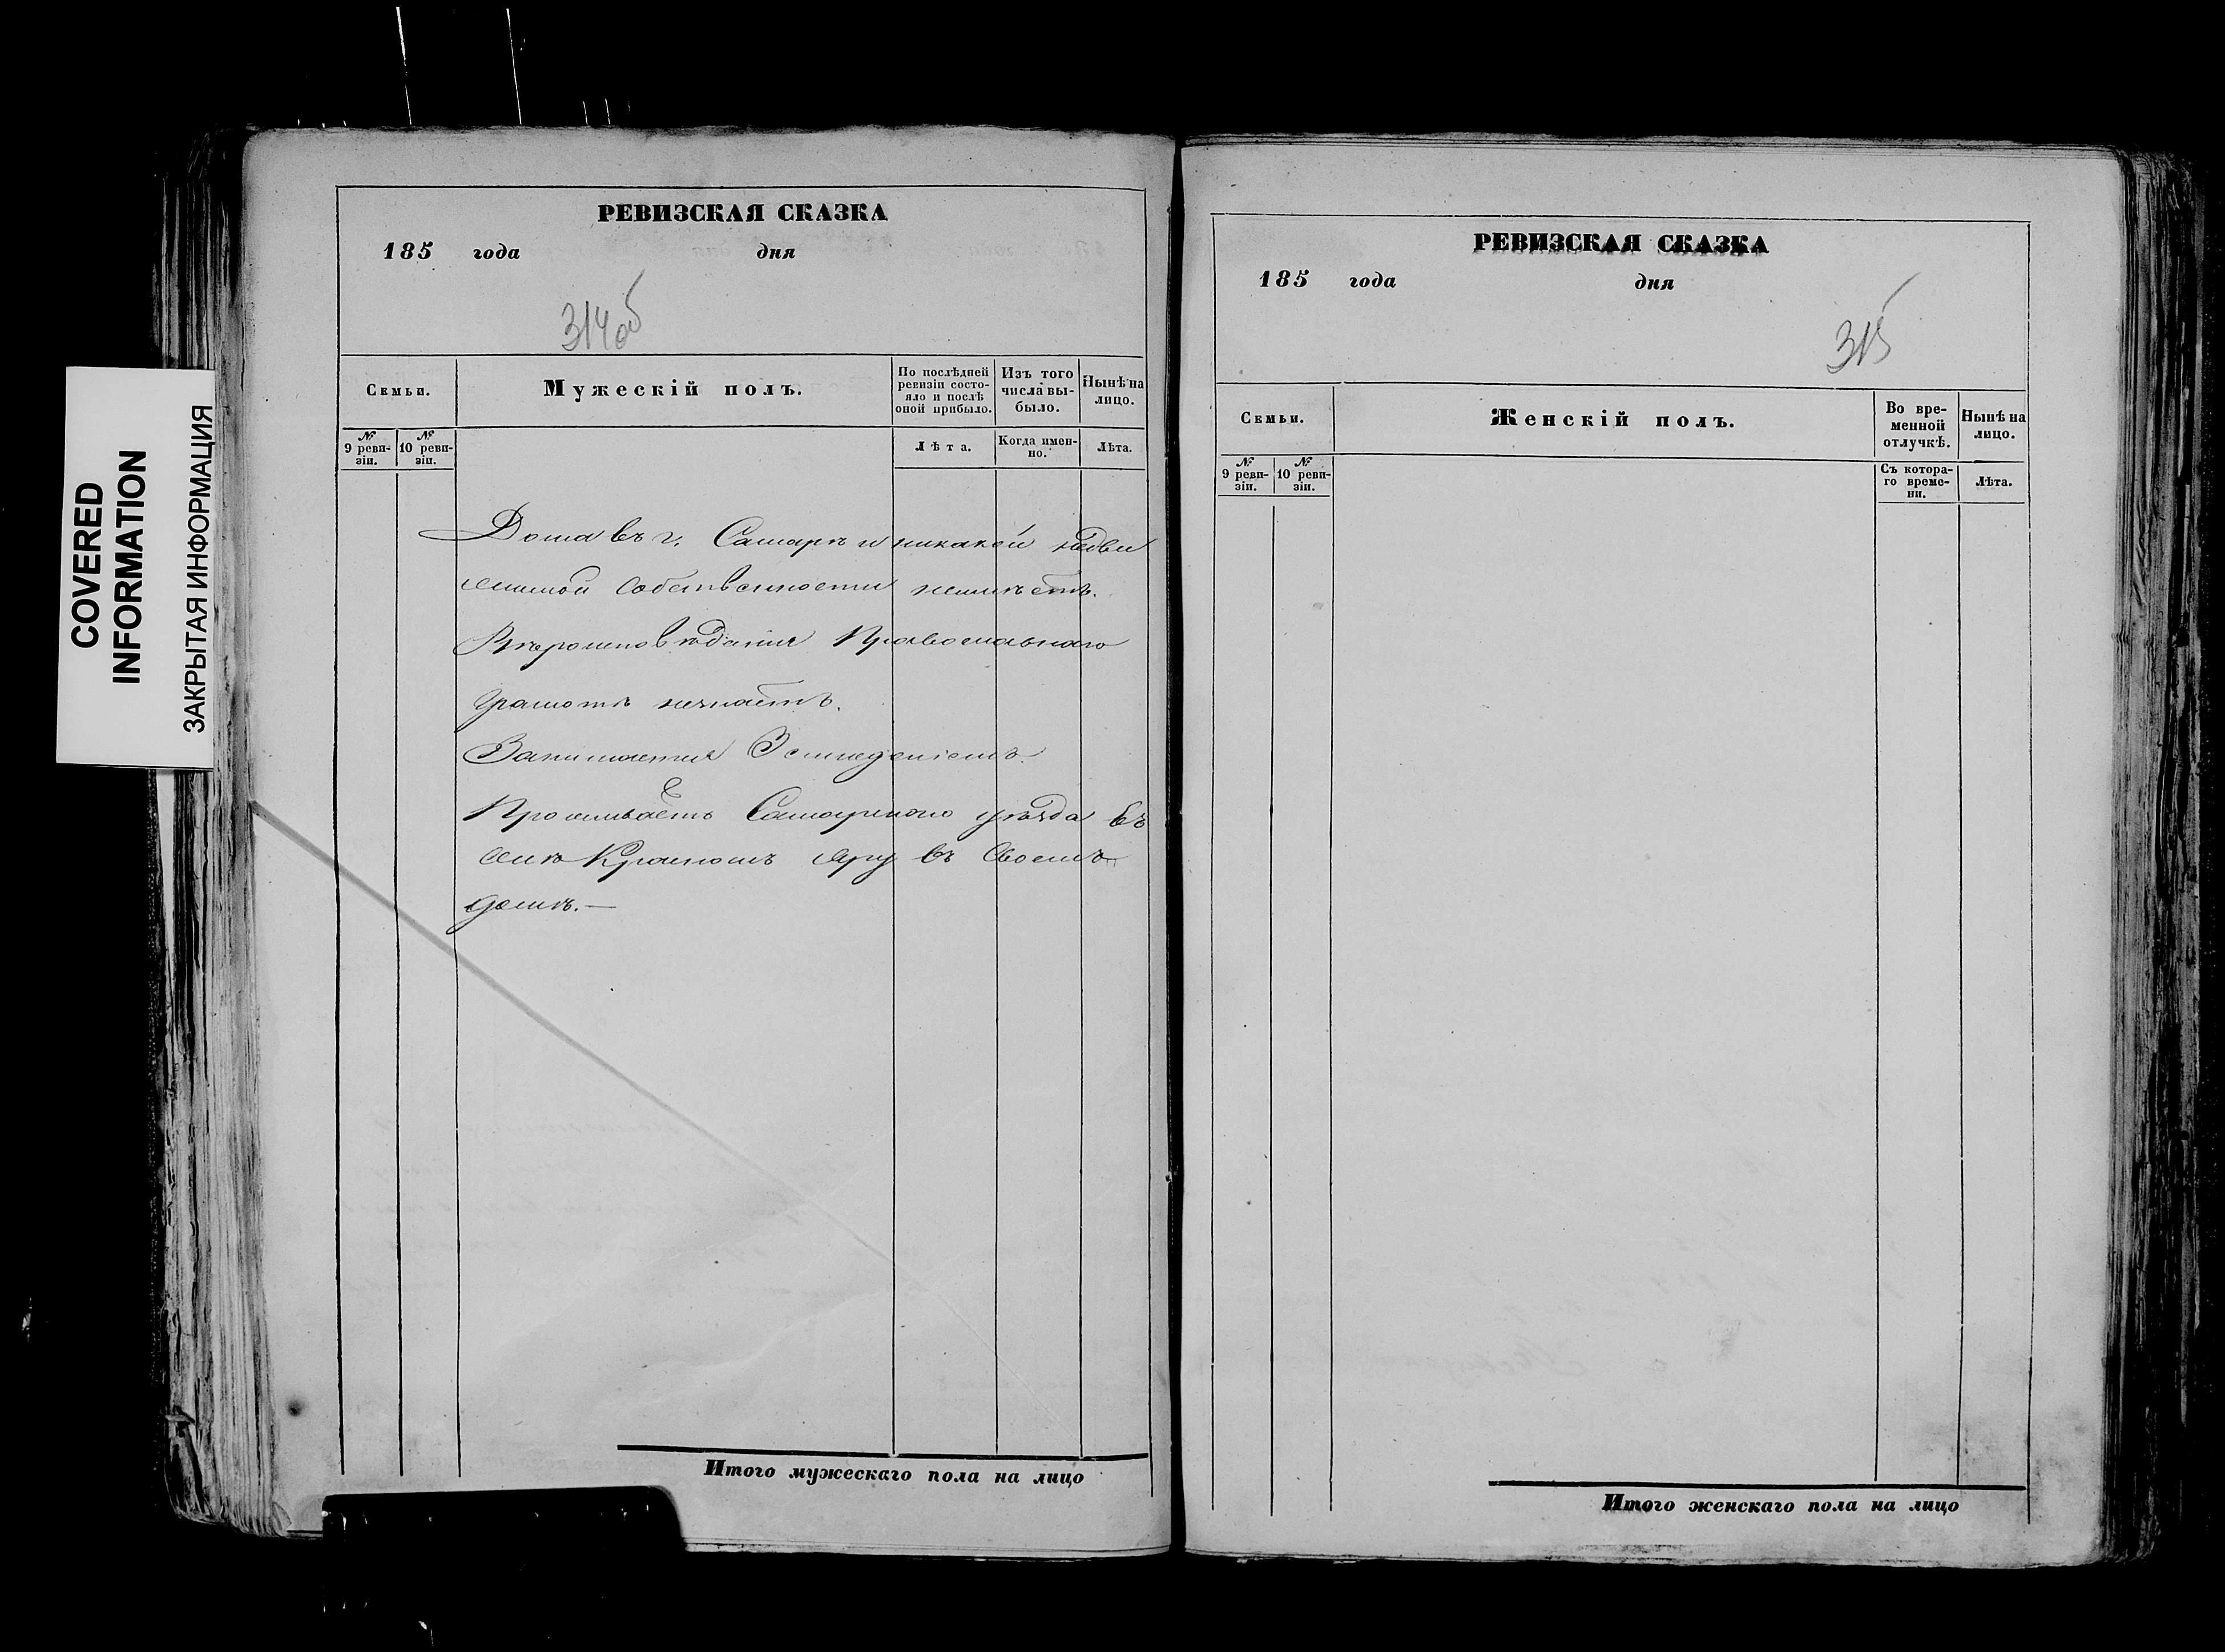 COVERED
INFORMATION
ЗАКРЫТАЯ ИНФОРМАЦИЯ
РЕВИЗСКАЯ СКАЗКА
185 года дня
314об
Семьи.
Мужескій полъ.
По послѣдней ревизіи состояло и послѣ оной прибыло.
Изъ того числа выбыло.
Нынѣ на лицо.
№ 9 ревизіи.
№ 10 ревизіи.
Лѣта.
Когда именно.
Лѣта.
Дома въ г. Самарѣ и никакой недви
жимой собственности неимѣетъ.
Вѣроисповѣданія Православнаго
грамотѣ незнаетъ.
Занимается
Проживаетъ Самарскаго уѣзда въ
селѣ Красномъ Яру въ своемъ
домѣ.—
Итого мужескаго пола на лицо
РЕВИЗСКАЯ СКАЗКА
185 года дня
315
Семьи.
Женскій полъ.
Во временной отлучкѣ.
Нынѣ на лицо.
№ 9 ревизіи.
№ 10 ревизіи.
Съ котораго времени.
Лѣта.
Итого женскаго пола на лицо